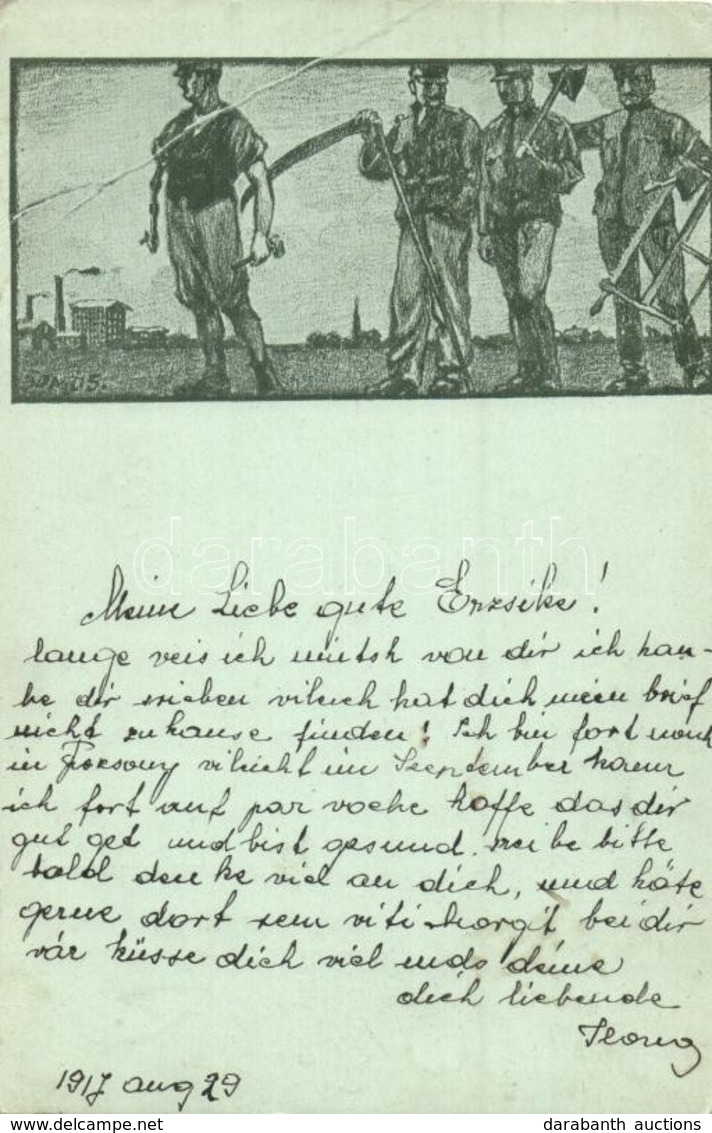 SOMLÓ S.
darabanth
Mein Liebe gute Erzsike!
lange veis ich nintsh von dir ich han-
be dir srieben vileich hat dich mein brief
nicht zu hause finden! Ich bin fort noch
in Pozsony vileicht im Szeptember kann
ich fort auf par voche hoffe das dir
gut get und bist gesund. srei be bitte
bald denke viel an dich, und häte
gerne dort sem viti Margit bei dir
vár küsse dich viel mds deine
dich liebende
Ilong
1917 aug 29
darabanth auctions